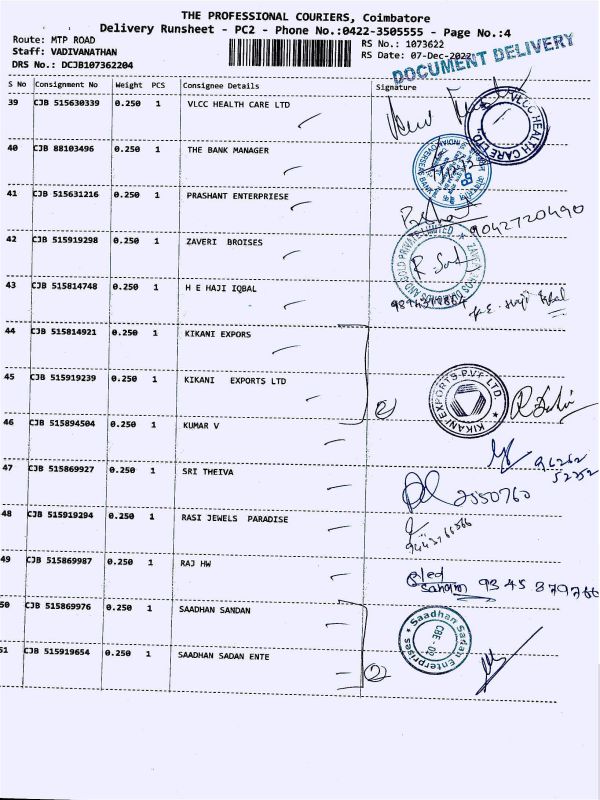 THE PROFESSIONAL COURIERS, Coimbatore
Delivery Runsheet - PC2 - Phone No.:0422-3505555 - Page No.:4
Route: MTP ROAD
RS No.: 1073622
Staff: VADIVANATHAN
RS Date: 07-Dec-2022
DRS No.: DCJB107362204
DOCUMENT DELIVERY
S No Consignment No Weight PCS Consignee Details Signature
39 CJB 515630339 0.250 1 VLCC HEALTH CARE LTD
VLCC HEALTH CARE LTD.
40 CJB 88103496 0.250 1 THE BANK MANAGER
41 CJB 515631216 0.250 1 PRASHANT ENTERPRIESE
9042720490
42 CJB 515919298 0.250 1 ZAVERI BROISES
43 CJB 515814748 0.250 1 H E HAJI IQBAL
H.E. Haji Iqbal
44 CJB 515814921 0.250 1 KIKANI EXPORS
45 CJB 515919239 0.250 1 KIKANI EXPORTS LTD
2
KIKANI EXPORTS PVT LTD.
46 CJB 515894504 0.250 1 KUMAR V
96262
52252
47 CJB 515869927 0.250 1 SRI THEIVA
2550760
48 CJB 515919294 0.250 1 RASI JEWELS PARADISE
49 CJB 515869987 0.250 1 RAJ HW
9345 879766
50 CJB 515869976 0.250 1 SAADHAN SANDAN
Saadhan Sadan Enterprises
51 CJB 515919654 0.250 1 SAADHAN SADAN ENTE
2